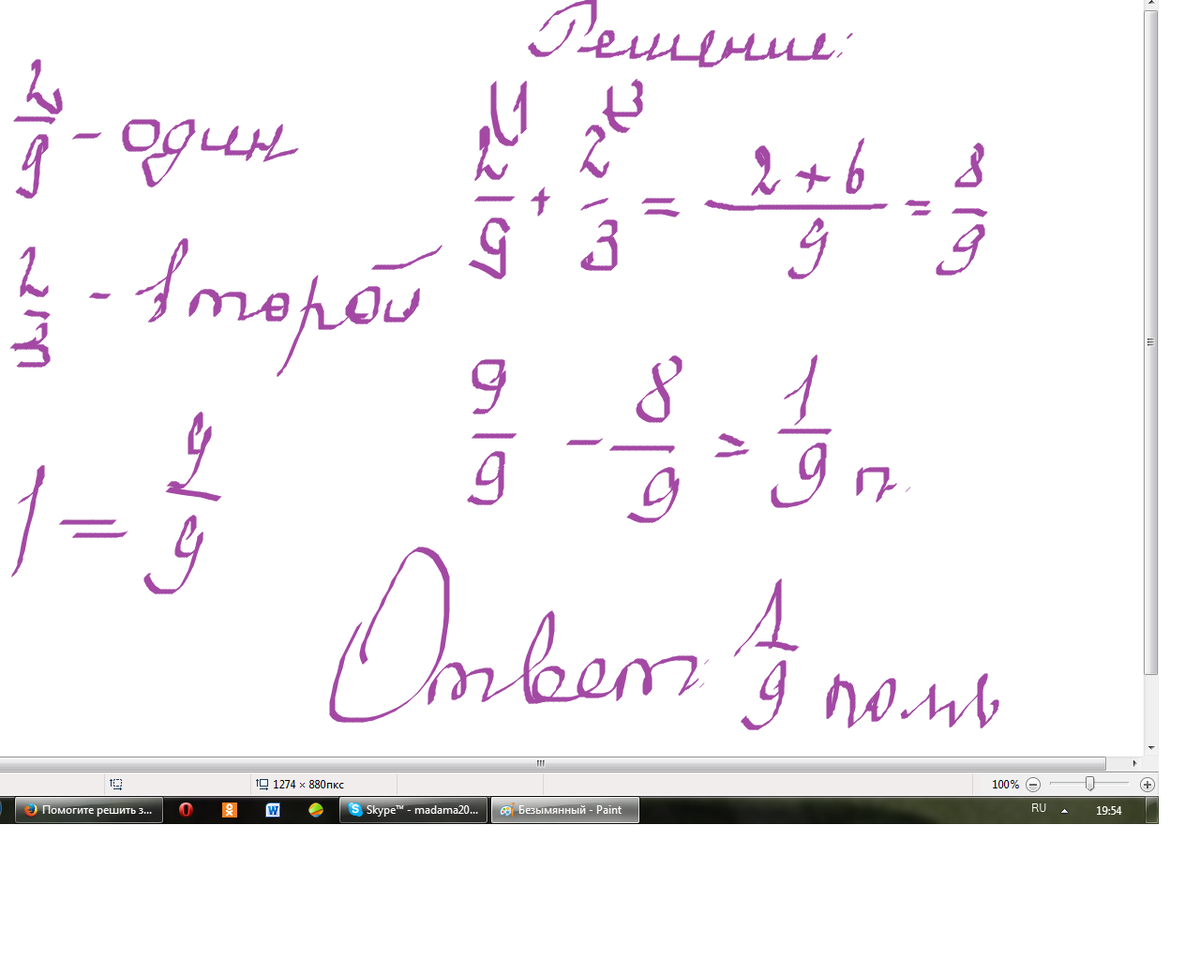 Решение:
2/9 - один
\1 \3
2/9 + 2/3 = 2+6/9 = 8/9
2/3 - второй
9/9 - 8/9 = 1/9 п.
1 = 9/9
Ответ: 1/9 поль
1274 × 880пкс
100%
Помогите решить з...
Skype™ - madama20...
Безымянный - Paint
RU
19:54